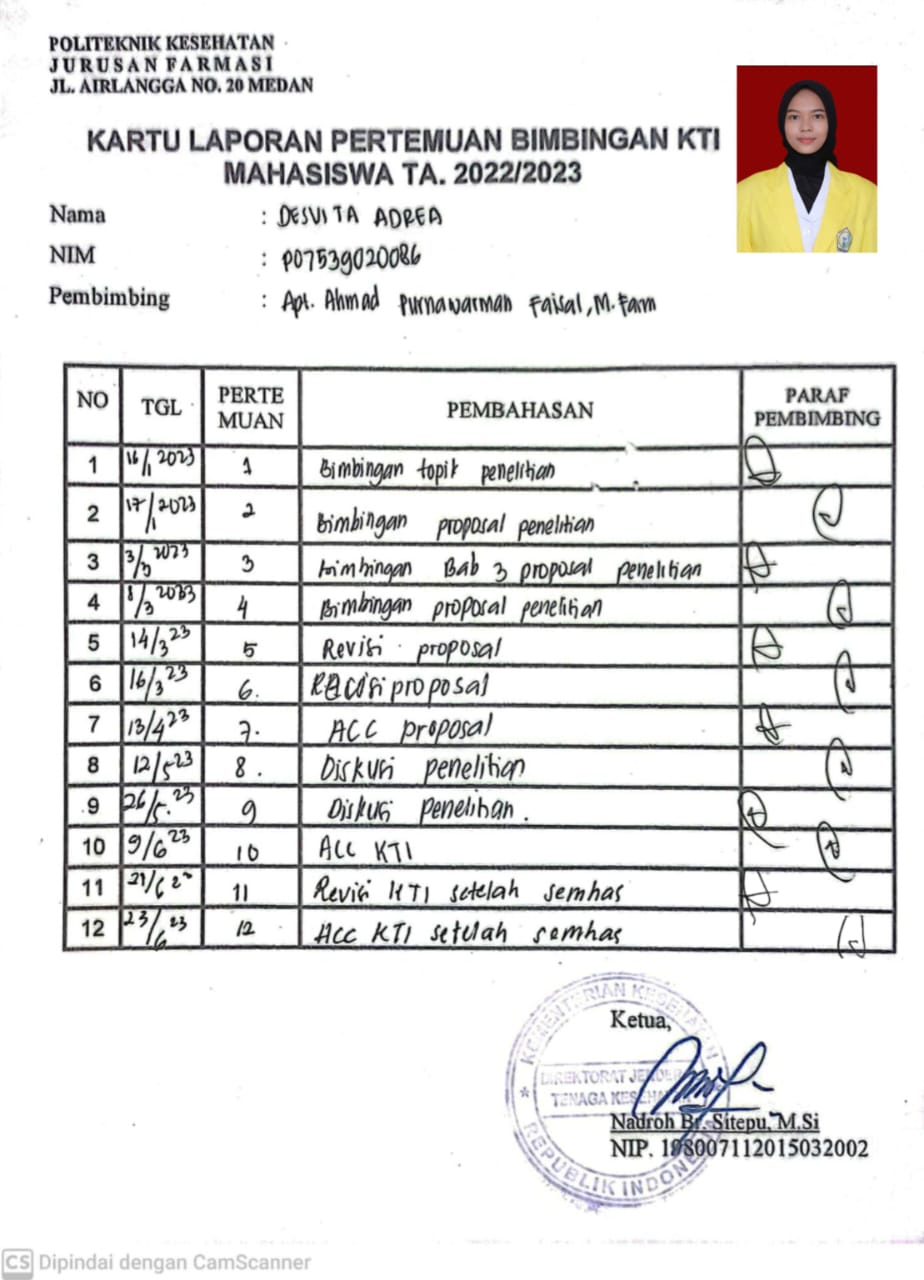 POLITEKNIK KESEHATAN
JURUSAN FARMASI
JL. AIRLANGGA NO. 20 MEDAN
KARTU LAPORAN PERTEMUAN BIMBINGAN KTI
MAHASISWA TA. 2022/2023
Nama : DESVITA ADREA
NIM : P07539020086
Pembimbing : Apt. Ahmad Purnawarman Faisal, M.Farm
NO TGL PERTE MUAN PEMBAHASAN PARAF PEMBIMBING
1 16/1 2023 1 Bimbingan topik penelitian
2 17/1 2023 2 Bimbingan proposal penelitian
3 3/3 2023 3 Bimbingan Bab 3 proposal penelitian
4 8/3 2023 4 Bimbingan proposal penelitian
5 14/3 23 5 Revisi proposal
6 16/3 23 6. Revisi proposal
7 13/4 23 7. ACC proposal
8 12/5 23 8. Diskusi penelitian
9 26/5. 23 9 Diskusi penelitian.
10 9/6 23 10 ACC KTI
11 11 Revisi KTI setelah semhas
12 23/6 23 12 Acc KTI setelah semhas
Ketua,
KEMENTERIAN KESEHATAN
DIREKTORAT JENDERAL
TENAGA KESEHATAN
REPUBLIK INDONESIA
Nadroh Br. Sitepu, M.Si
NIP. 198007112015032002
CS Dipindai dengan CamScanner